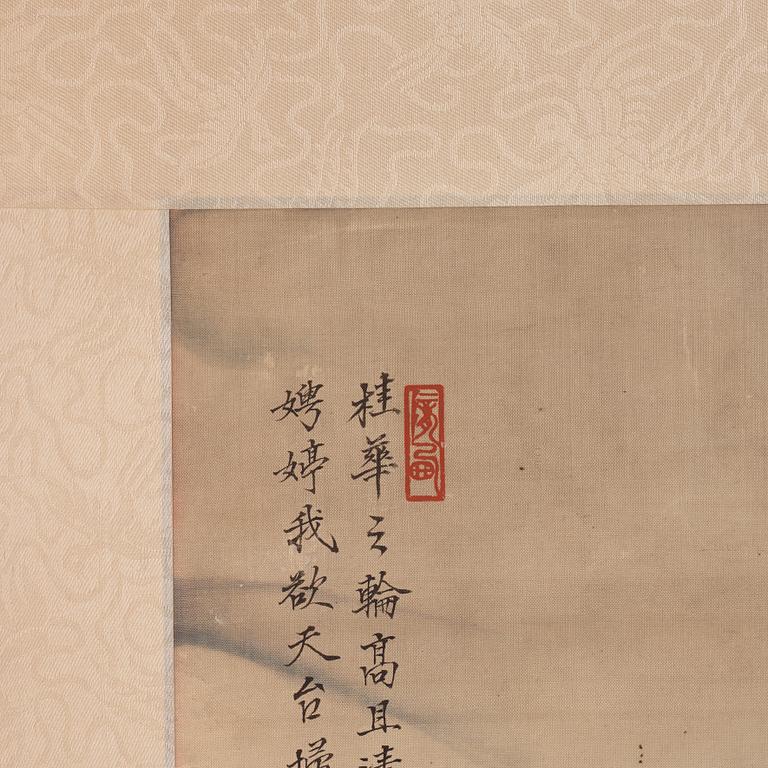 桂華之輪高且清
娉婷我欲天台掃